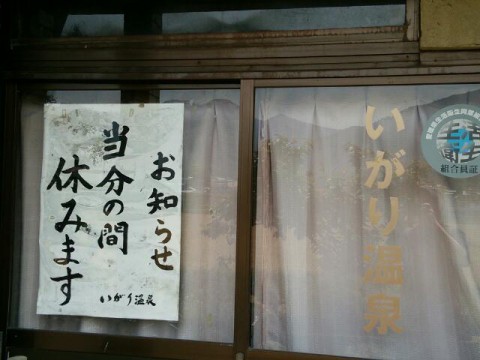 お知らせ
当分の間
休みます
いがり温泉
いがり温泉
組合員証